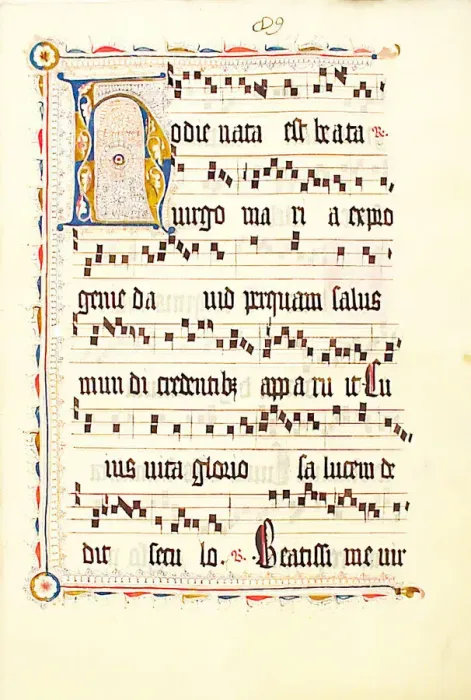 Hodie nata est beata R.
uirgo ma ri a expro
genie da uid perquam salus
mun di credentibz appa ru it Cu
ius uita glorio sa lucem de
dit secu lo. R. Beatissi me uir